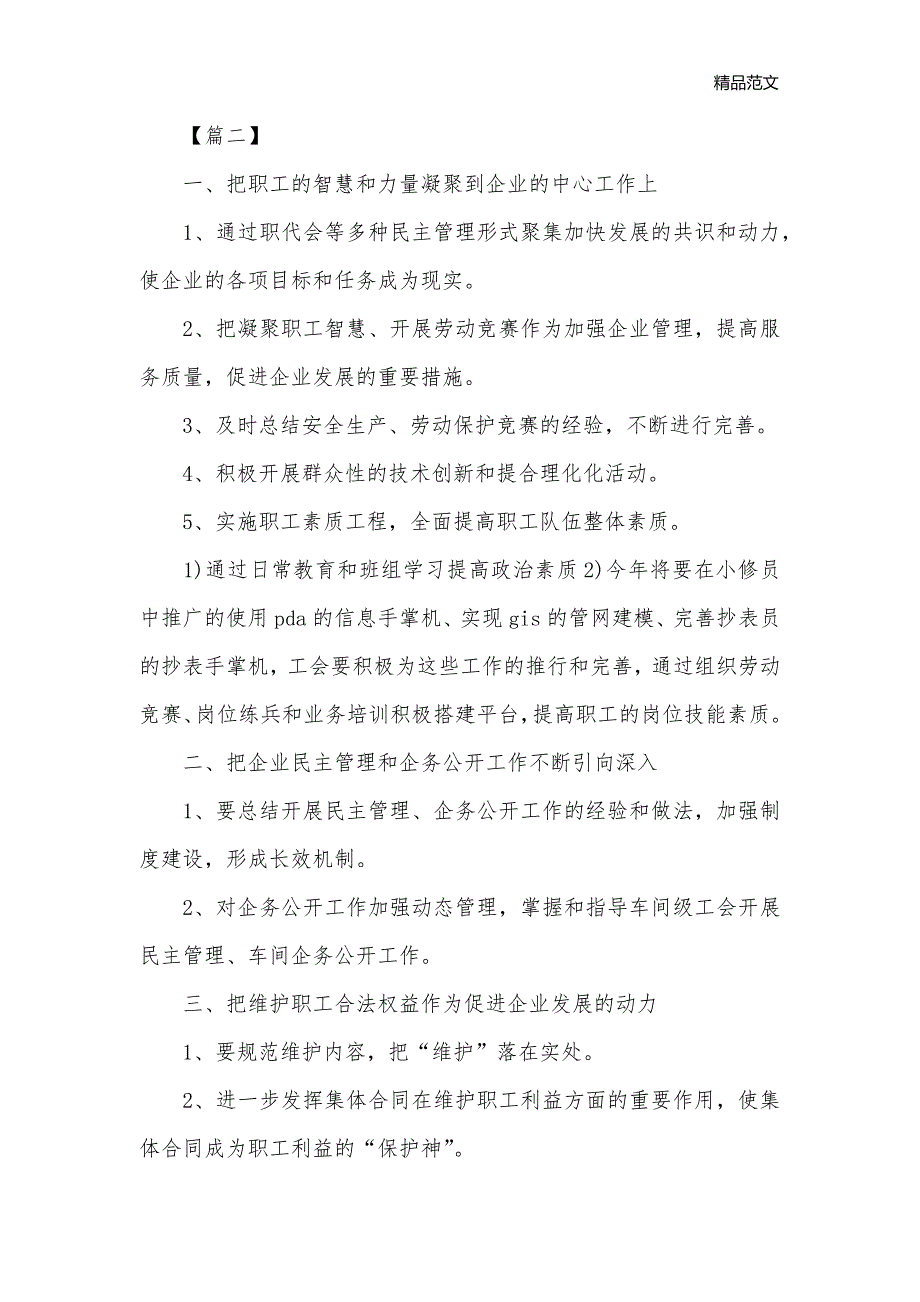 精品范文
【篇二】
一、把职工的智慧和力量凝聚到企业的中心工作上
1、通过职代会等多种民主管理形式聚集加快发展的共识和动力，
使企业的各项目标和任务成为现实。
2、把凝聚职工智慧、开展劳动竞赛作为加强企业管理，提高服
务质量，促进企业发展的重要措施。
3、及时总结安全生产、劳动保护竞赛的经验，不断进行完善。
4、积极开展群众性的技术创新和提合理化化活动。
5、实施职工素质工程，全面提高职工队伍整体素质。
1)通过日常教育和班组学习提高政治素质2)今年将要在小修员
中推广的使用pda的信息手掌机、实现gis的管网建模、完善抄表员
的抄表手掌机，工会要积极为这些工作的推行和完善，通过组织劳动
竞赛、岗位练兵和业务培训积极搭建平台，提高职工的岗位技能素质。
二、把企业民主管理和企务公开工作不断引向深入
1、要总结开展民主管理、企务公开工作的经验和做法，加强制
度建设，形成长效机制。
2、对企务公开工作加强动态管理，掌握和指导车间级工会开展
民主管理、车间企务公开工作。
三、把维护职工合法权益作为促进企业发展的动力
1、要规范维护内容，把“维护”落在实处。
2、进一步发挥集体合同在维护职工利益方面的重要作用，使集
体合同成为职工利益的“保护神”。